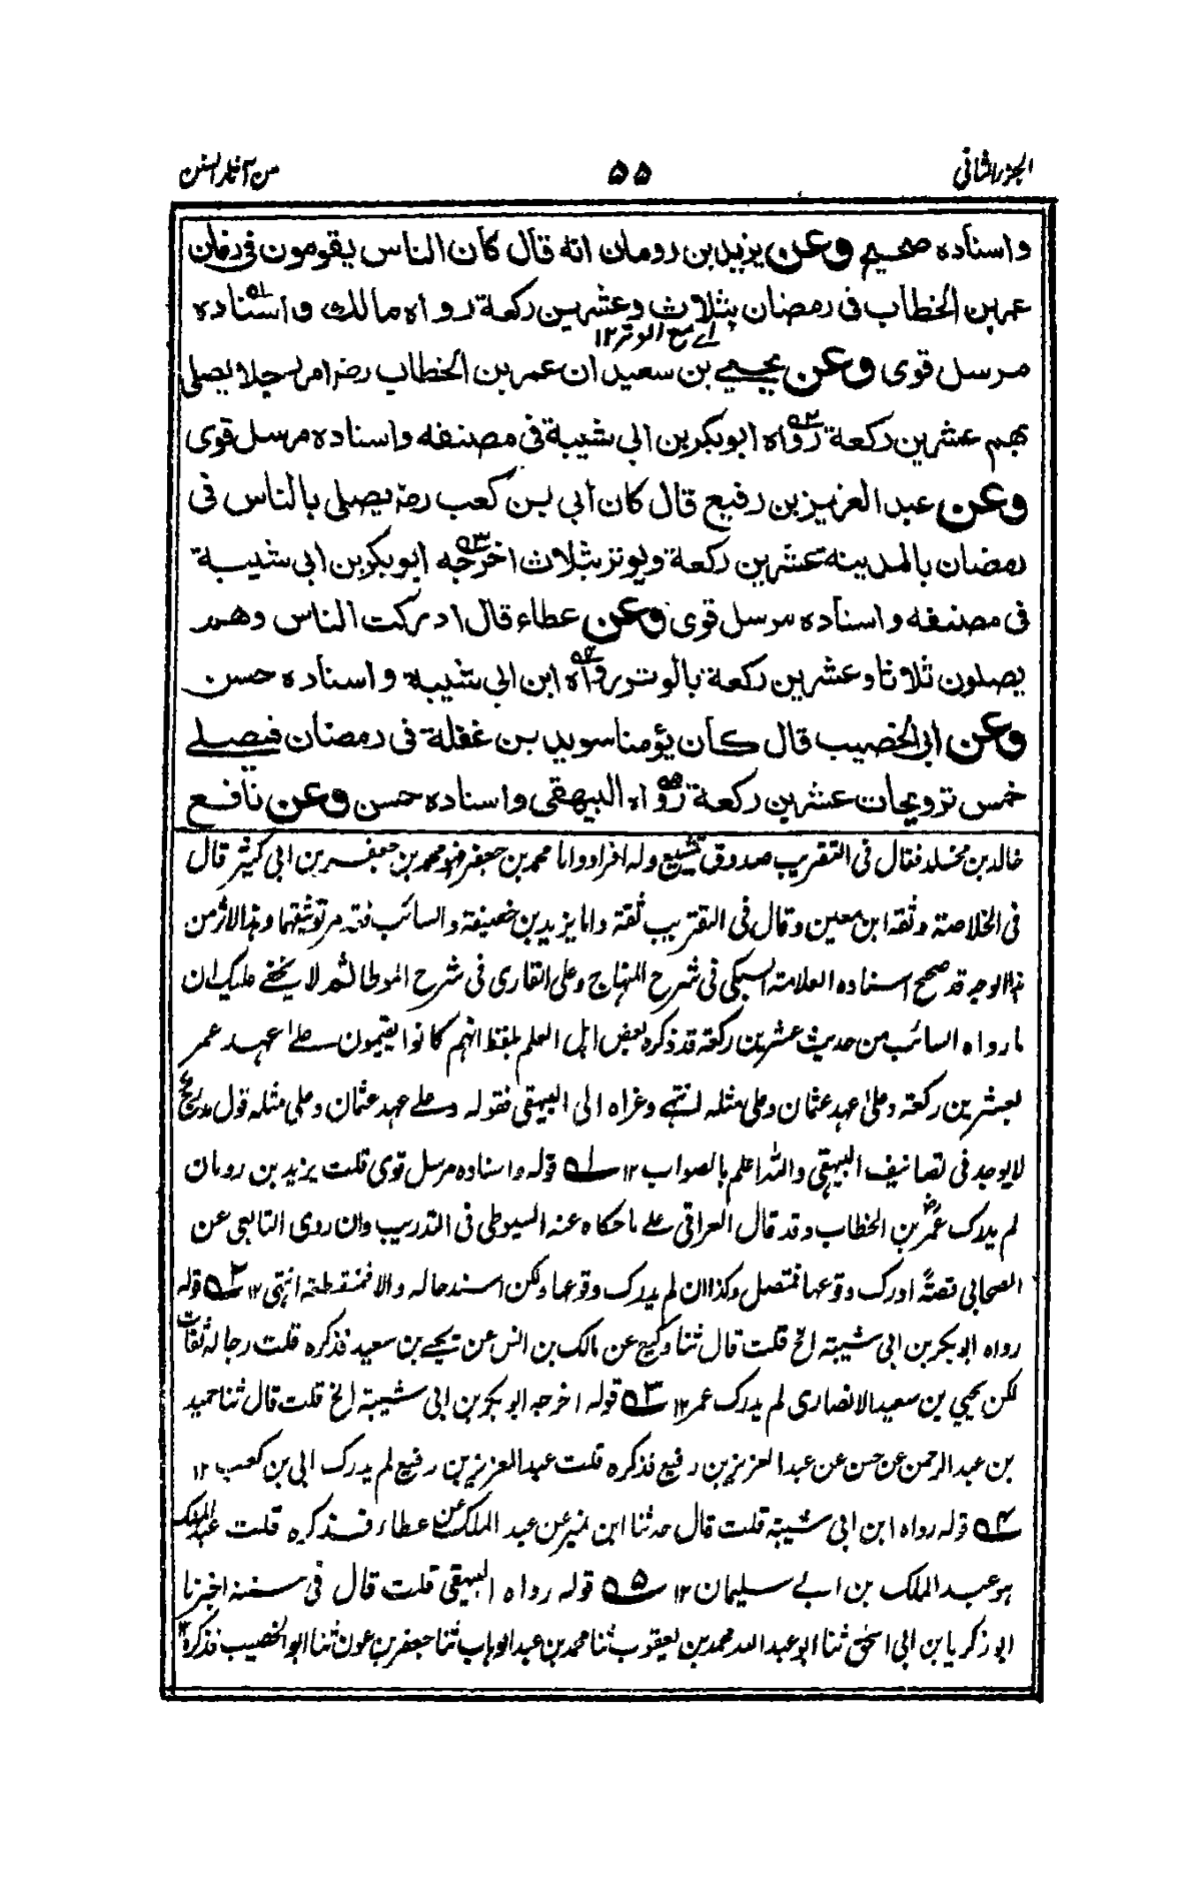 الجزء الثانی ۵۵ من آثار السنن
واسناده صحیح وعن یزید بن رومان انه قال کان الناس یقومون فی زمان
عمر بن الخطاب فی رمضان بثلاث وعشرین رکعة رواه مالك واسناده ۵۱
ای مع الوتر ۱۲
مرسل قوی وعن یحیی بن سعید ان عمر بن الخطاب رضـ امر رجلا یصلی
بهم عشرین رکعة رواه ۵۲ ابو بکر بن ابی شیبة فی مصنفه واسناده مرسل قوی
وعن عبد العزیز بن رفیع قال کان ابی بن کعب رضـ یصلی بالناس فی
رمضان بالمدینة عشرین رکعة ویوتر بثلاث اخرجه ۵۳ ابو بکر بن ابی شیبة
فی مصنفه واسناده مرسل قوی وعن عطاء قال ادرکت الناس وهم
یصلون ثلاثا وعشرین رکعة بالوتر رواه ۵۴ ابن ابی شیبة واسناده حسن
وعن ابی الخضیب قال کان یؤمنا سوید بن غفلة فی رمضان فیصلے
خمس ترویحات عشرین رکعة رواه ۵۵ البیهقی واسناده حسن وعن نافع
خالد بن مخلد فقال فی التقریب صدوق تشیع وله افراد واما محمد بن جعفر فهو محمد بن جعفر بن ابی کثیر قال
فی الخلاصة وثقه ابن معین وقال فی التقریب ثقة واما یزید بن خصیفة والسائب فقد مر توثیقهما وهذا الاثر من
هذا الوجه قد صحح اسناده العلامة السبکی فی شرح المنهاج وعلی القاری فی شرح الموطا ثم لا یخفے علیک ان
ما رواه السائب من حدیث عشرین رکعة قد ذکره بعض اهل العلم بلفظ انهم کانوا یقیمون علے عهد عمر
بعشرین رکعة وعلی عهد عثمان وعلی مثله انتهے وعزاه الی البیهقی فقوله وعلے عهد عثمان وعلی مثله قول مدرج
لا یوجد فی تصانیف البیهقی والله اعلم بالصواب ۱۲ ۵۱ قوله واسناده مرسل قوی قلت یزید بن رومان
لم یدرک عمر بن الخطاب وقد قال العراقی علے ما حکاه عنه السیوطی فی التدریب وان روی التابعی عن
الصحابی قصةً ادرک وقوعها فمتصل وکذا ان لم یدرک وقوعها ولکن اسندها له والا فمنقطعة انتهی ۱۲ ۵۲ قوله
رواه ابو بکر بن ابی شیبة الخ قلت قال ثنا وکیع عن مالک بن انس عن یحیے بن سعید فذکره قلت رجاله ثقات
لکن یحیی بن سعید الانصاری لم یدرک عمر ۱۲ ۵۳ قوله اخرجه ابو بکر بن ابی شیبة الخ قلت قال ثنا حمید
بن عبد الرحمن عن حسن عن عبد العزیز بن رفیع فذکره قلت عبد العزیز بن رفیع لم یدرک ابی بن کعب ۱۲
۵۴ قوله رواه ابن ابی شیبة قلت قال حدثنا ابن نمیر عن عبد الملک عن عطاء فذکره قلت عبد الملک
هو عبد الملک بن ابے سلیمان ۱۲ ۵۵ قوله رواه البیهقی قلت قال فی سننه اخبرنا
ابو زکریا بن ابی اسحٰق ثنا ابو عبد الله محمد بن یعقوب ثنا محمد بن عبد الوهاب ثنا جعفر بن عون ثنا ابو الخصیب فذکره ۱۲